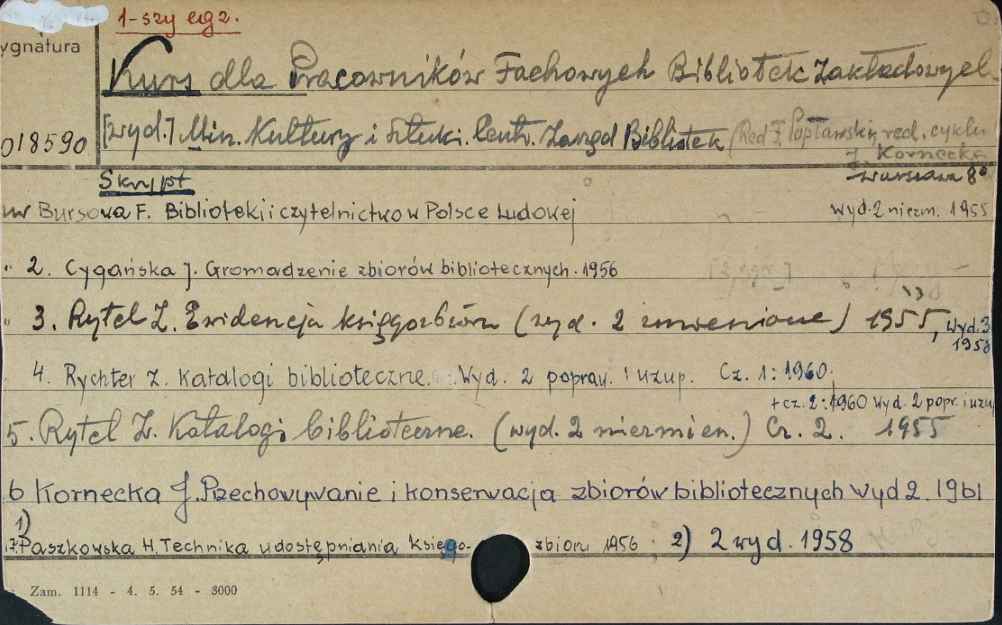 1-szy egz.
ygnatura
Kurs dla Pracowników Fachowych Bibliotek Zakładowych
018590
[wyd.] Min. Kultury i Sztuki. Centr. Zarząd Bibliotek (Red. J. Popławski, red. cyklu
J. Kornecka
Skrypt
Warszawa 8°
nr Bursowa F. Biblioteki i czytelnictwo w Polsce Ludowej wyd. 2 niezm. 1955
2. Cygańska J. Gromadzenie zbiorów bibliotecznych. 1956
3. Rytel Z. Ewidencja księgozbioru (wyd. 2 zmienione) 1955, wyd. 3
1958
4. Rychter Z. Katalogi biblioteczne. Wyd. 2 popraw. i uzup. Cz. 1: 1960.
+cz. 2: 1960 wyd. 2 popr. i uzup
5. Rytel Z. Katalogi biblioteczne. (wyd. 2 niezmien.) Cz. 2. 1955
6 Kornecka J. Przechowywanie i konserwacja zbiorów bibliotecznych wyd 2. 1961
1)
7. Paszkowska H. Technika udostępniania księgo- zbioru 1956 ; 2) 2 wyd. 1958
Zam. 1114 - 4. 5. 54 - 3000